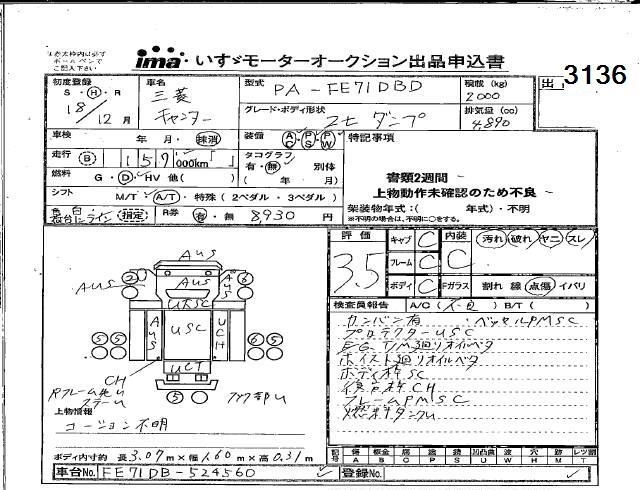 太枠内は必ず
ボールペンで
ご記入下さい
ima いすゞモーターオークション出品申込書
出 3136
初度登録
S・H・R
18年 12月
車名
三菱
キャンター
型式
PA-FE71DBD
グレード・ボディ形状
2t ダンプ
積載 (kg)
2000
排気量 (cc)
4,890
車検 年・月・抹消
装備 AC PS PW
特記事項
走行 B 159000km
タコグラフ
有・無 別体
( 年 月)
燃料 G・D・HV 他( )
書類2週間
上物動作未確認のため不良
シフト M/T・A/T・特殊(2ペダル・3ペダル)
架装物年式:( 年式)・不明
※不明の場合は、不明に○をする。
色 白 (指定)
R券 有・無 8,930 円
評価 3.5
キャブ C 内装 C 汚れ・破れ・ヤニ・スレ
フレーム C
ボディ C Fガラス 割れ 線 点傷 イバリ
検査員報告 A/C(不良) B/T( )
カンバン有 ・ベッセルPMSC
プロテクターUSC
EG T/M廻りオイルベタ
ホイスト廻りオイルベタ
ボディ枠SC
後台枠CH
フレームPMSC
燃料タンクU
AUS
AUS AUS
2 6
AUS
UKSC
AUS USC UCH
5 5 5 5
UCT
CH
5
Rフレーム先U
上物情報
コーション不明
ボディ内寸約 長3.07m×幅1.60m×高0.31m
車台No. FE71DB-524560
登録No.
記号 傷 A 板金 B 腐 C 塗 P 錆 S 凹 U 凸凹曲 波 W 穴 H 跡 M レツ割 T